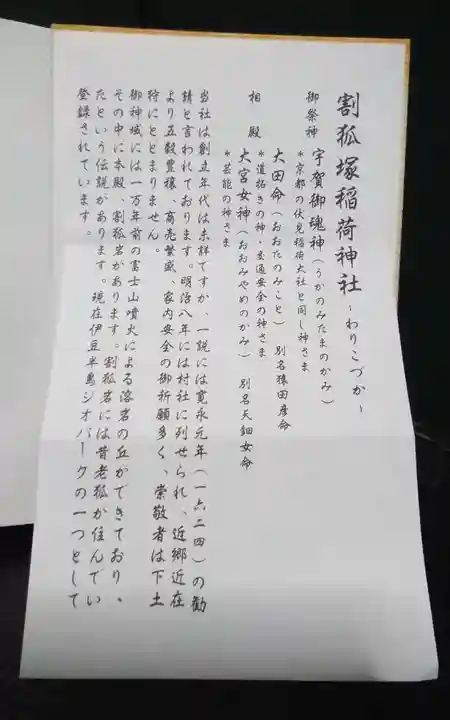 割狐塚稲荷神社 ~わりこづか~
御祭神 宇賀御魂神(うかのみたまのかみ)
*京都の伏見稲荷大社と同じ神さま
大田命(おおたのみこと) 別名猿田彦命
*道拓きの神・交通安全の神さま
相殿
大宮女神(おおみやめのかみ) 別名天鈿女命
*芸能の神さま
当社は創立年代は未詳ですが、一説には寛永元年(一六二四)の勧
請と言われております。明治八年には村社に列せられ、近郷近在
より五穀豊穣、商売繁盛、家内安全の御祈願多く、崇敬者は下土
狩にとどまりません。
御神域には一万年前の富士山噴火による溶岩の丘ができており、
その中に本殿、割狐岩があります。割狐岩には昔老狐が住んでい
たという伝説があります。現在伊豆半島ジオパークの一つとして
登録されています。